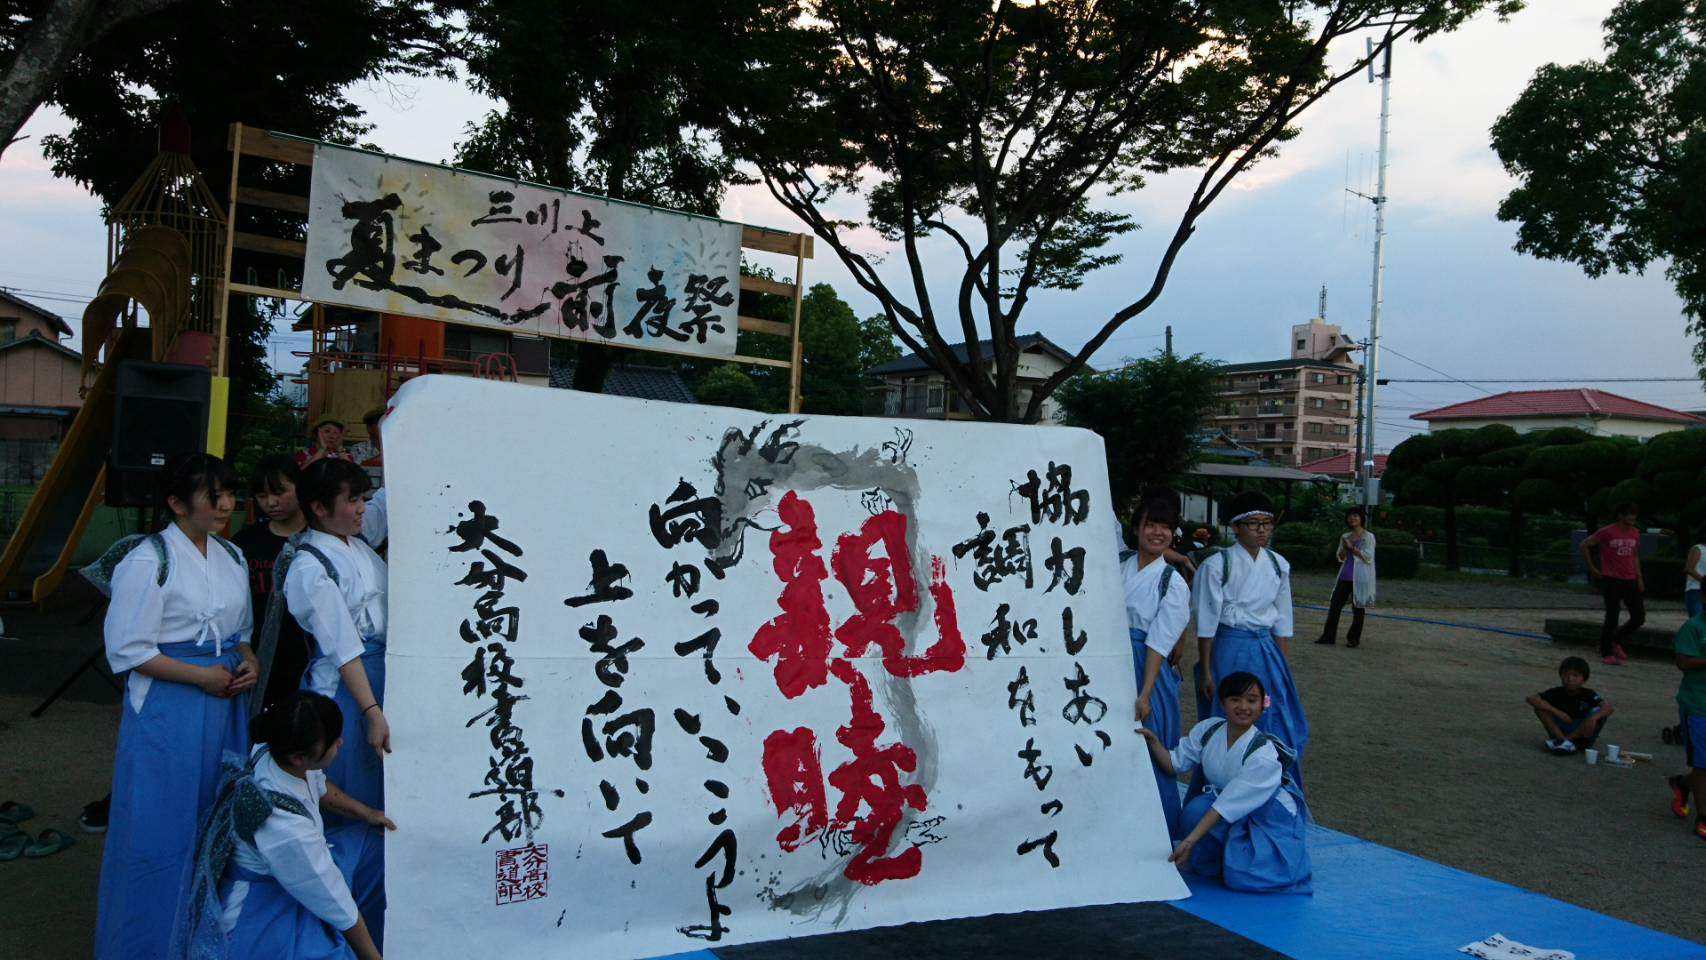 三川上
夏まつり前夜祭
協力しあい
調和をもって
親睦
向かっていこうよ
上を向いて
大分高校書道部
大分高校
書道部